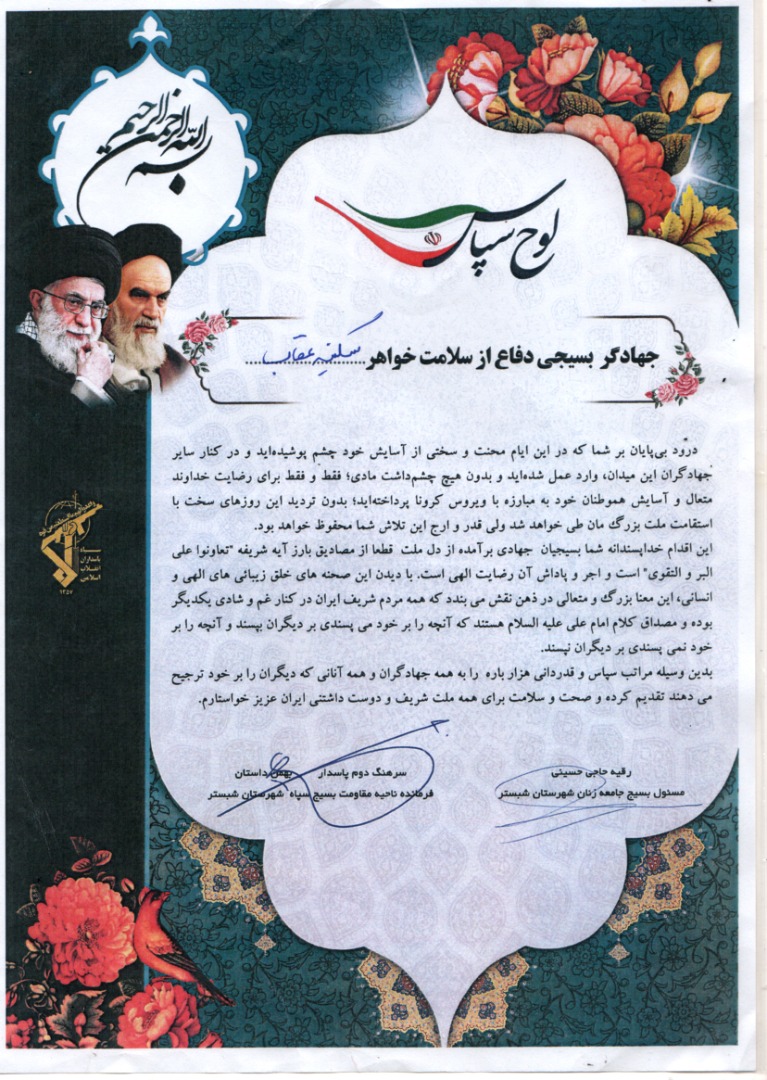 بسم الله الرحمن الرحیم
لوح سپاس
جهادگر بسیجی دفاع از سلامت خواهر
درود بی‌پایان بر شما که در این ایام محنت و سختی از آسایش خود چشم پوشیده‌اید و در کنار سایر
جهادگران این میدان، وارد عمل شده‌اید و بدون هیچ چشم‌داشت مادی؛ فقط و فقط برای رضایت خداوند
متعال و آسایش هموطنان خود به مبارزه با ویروس کرونا پرداخته‌اید؛ بدون تردید این روزهای سخت با
استقامت ملت بزرگ مان طی خواهد شد ولی قدر و ارج این تلاش شما محفوظ خواهد بود.
این اقدام خداپسندانه شما بسیجیان جهادی برآمده از دل ملت قطعا از مصادیق بارز آیه شریفه "تعاونوا علی
البر و التقوی" است و اجر و پاداش آن رضایت الهی است. با دیدن این صحنه های خلق زیبائی های الهی و
انسانی، این معنا بزرگ و متعالی در ذهن نقش می بندد که همه مردم شریف ایران در کنار غم و شادی یکدیگر
بوده و مصداق کلام امام علی علیه السلام هستند که آنچه را بر خود می پسندی بر دیگران بپسند و آنچه را بر
خود نمی پسندی بر دیگران نپسند.
بدین وسیله مراتب سپاس و قدردانی هزار باره را به همه جهادگران و همه آنانی که دیگران را بر خود ترجیح
می دهند تقدیم کرده و صحت و سلامت برای همه ملت شریف و دوست داشتنی ایران عزیز خواستارم.
سپاه
پاسداران
انقلاب
اسلامی
۱۳۵۷
رقیه حاجی حسینی
مسئول بسیج جامعه زنان شهرستان شبستر
سرهنگ دوم پاسدار بهمن داستان
فرمانده ناحیه مقاومت بسیج سپاه شهرستان شبستر